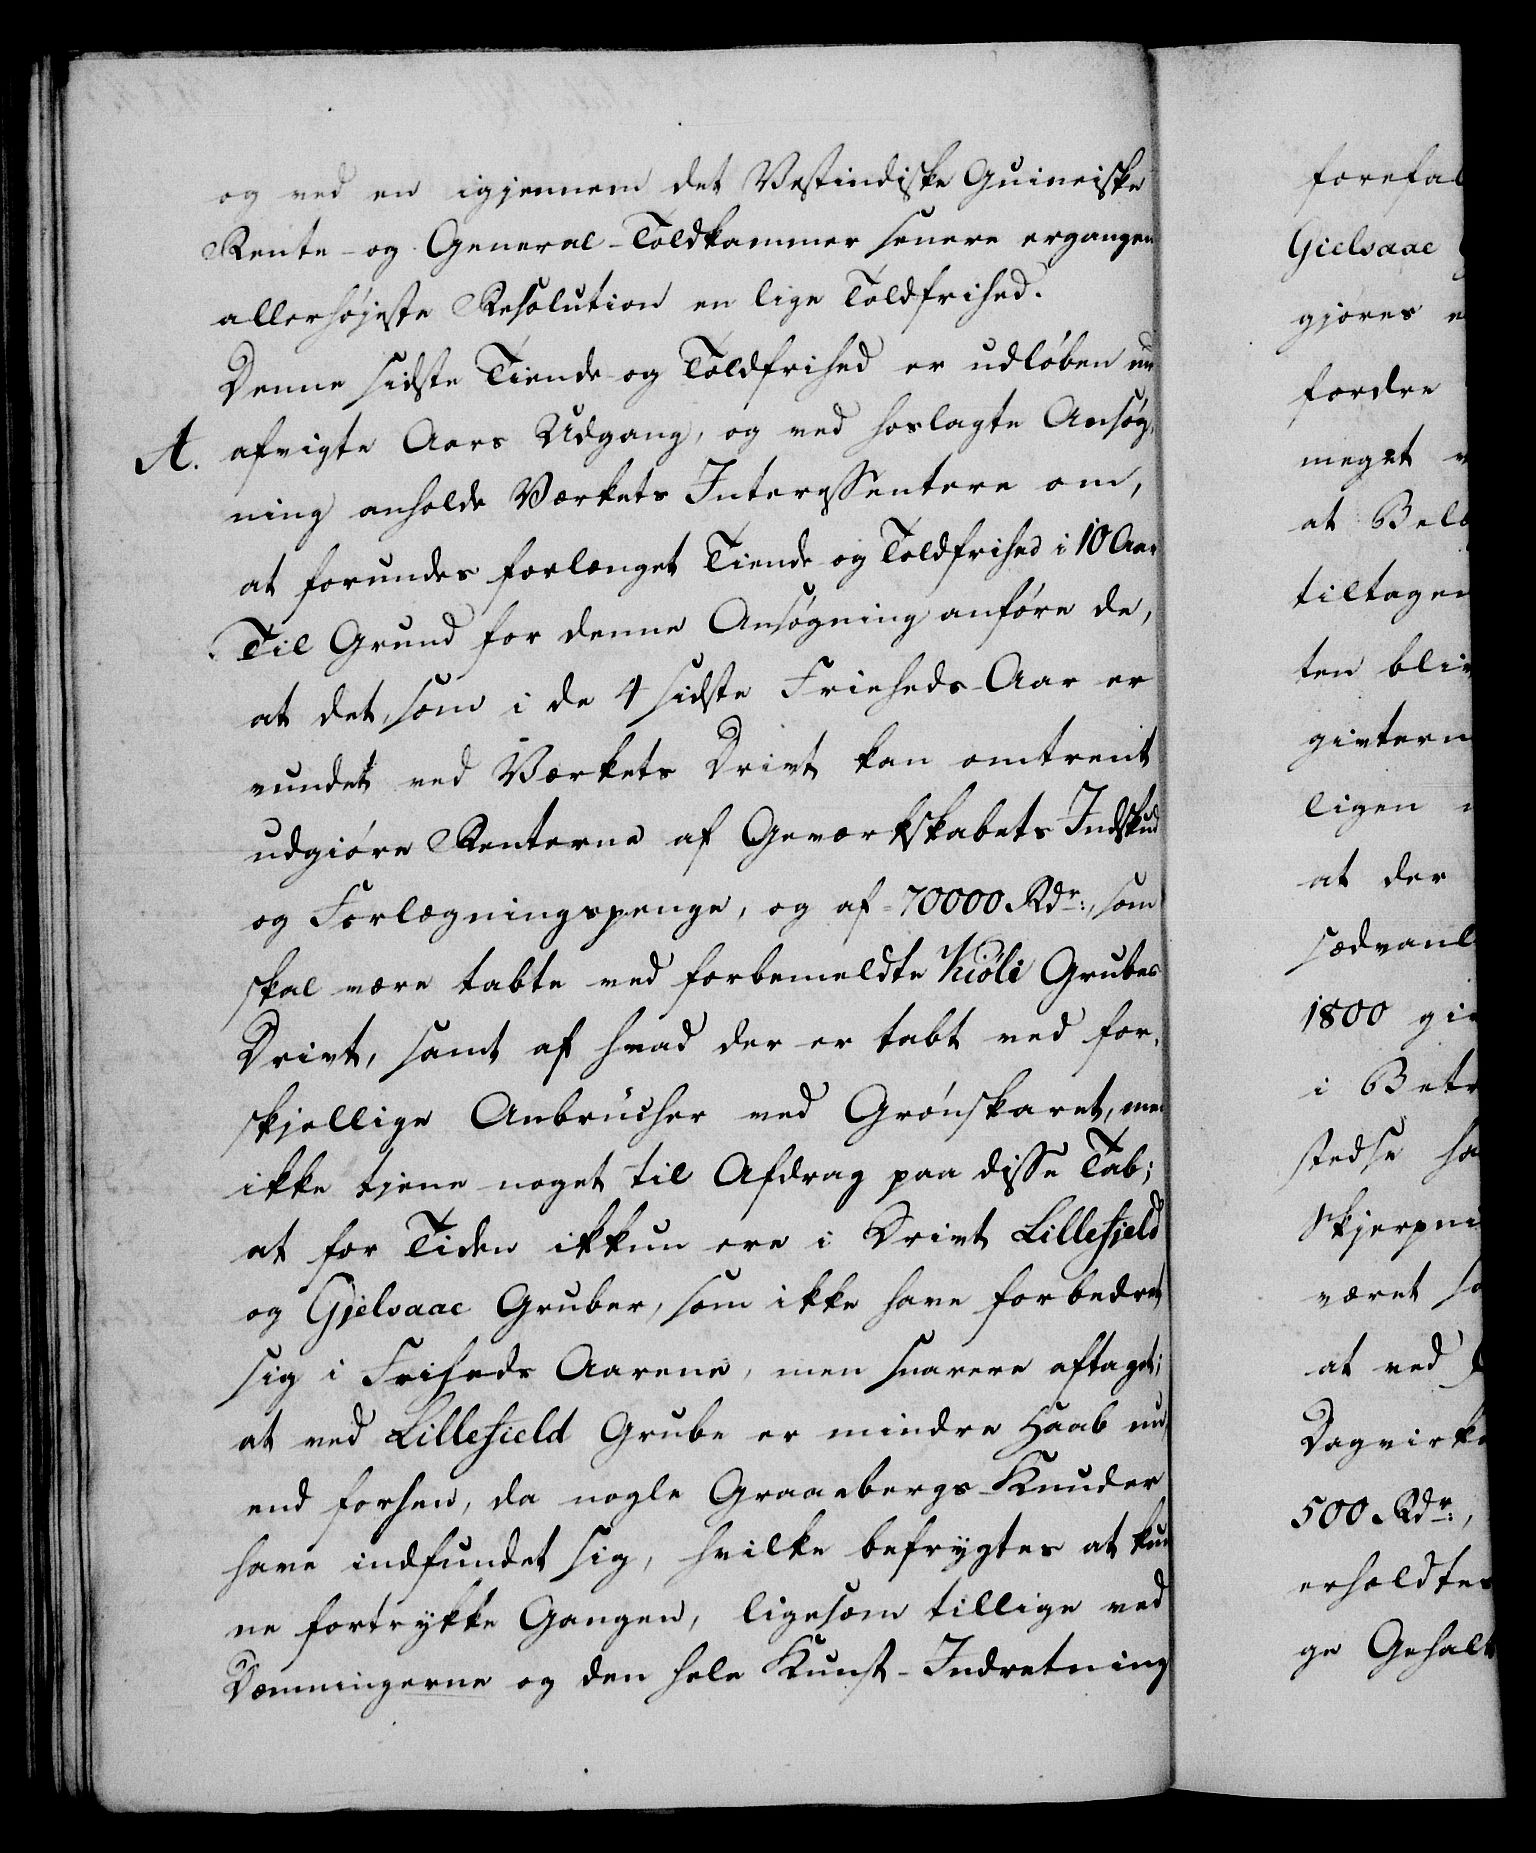 og ved en igjennem det Vestindiske Guineiske
Rente- og General-Toldkammer senere ergangen
allerhøjeste Resolution en lige Toldfrihed.
Denne sidste Tiende- og Toldfrihed er udløben
A. afvigte Aars Udgang, og ved hoslagte Ansøg-
ning anholde Værkets Interessentere om,
at forundes forlænget Tiende og Toldfrihed i 10 Aar
Til Grund for denne Ansøgning anføre de,
at det, som i de 4 sidste Frieheds-Aar er
vundet ved Værkets Drivt kan omtrent
udgiøre Renterne af Geværkskabets Indskud
og Forlægningspenge, og af 70000 Rdr:, som
skal være tabte ved forbemeldte Kiöli Grubes
Drivt, samt af hvad der er tabt ved for-
skjellige Anbrücher ved Grønskaret, men
ikke tjene noget til Afdrag paa disse Tab;
at for Tiden ikkun ere i Drivt Lillefjeld
og Gjelsaae Gruber, som ikke have forbedret
sig i Friheds Aarene, men snarere aftaget;
at ved Lillefield Grube er mindre Haab nu,
end forhen, da nogle Graaebergs-Knuder
have indfundet sig, hvilke befrygtes at kun
ne fortrykke Gangen, ligesom tillige ved
Dæmningerne og den hele Kunst-Indretning
forefal
Gielsaae
gjøres
fordre
meget
at Belø
tiltagen
ten bliv
givtern
ligen
at der
sædvanl
1800 giv
i Betr
stedse ha
skjerpni
været so
at ved
Dagvirke
500 Rdr:,
erholdtes
ge Gehalt